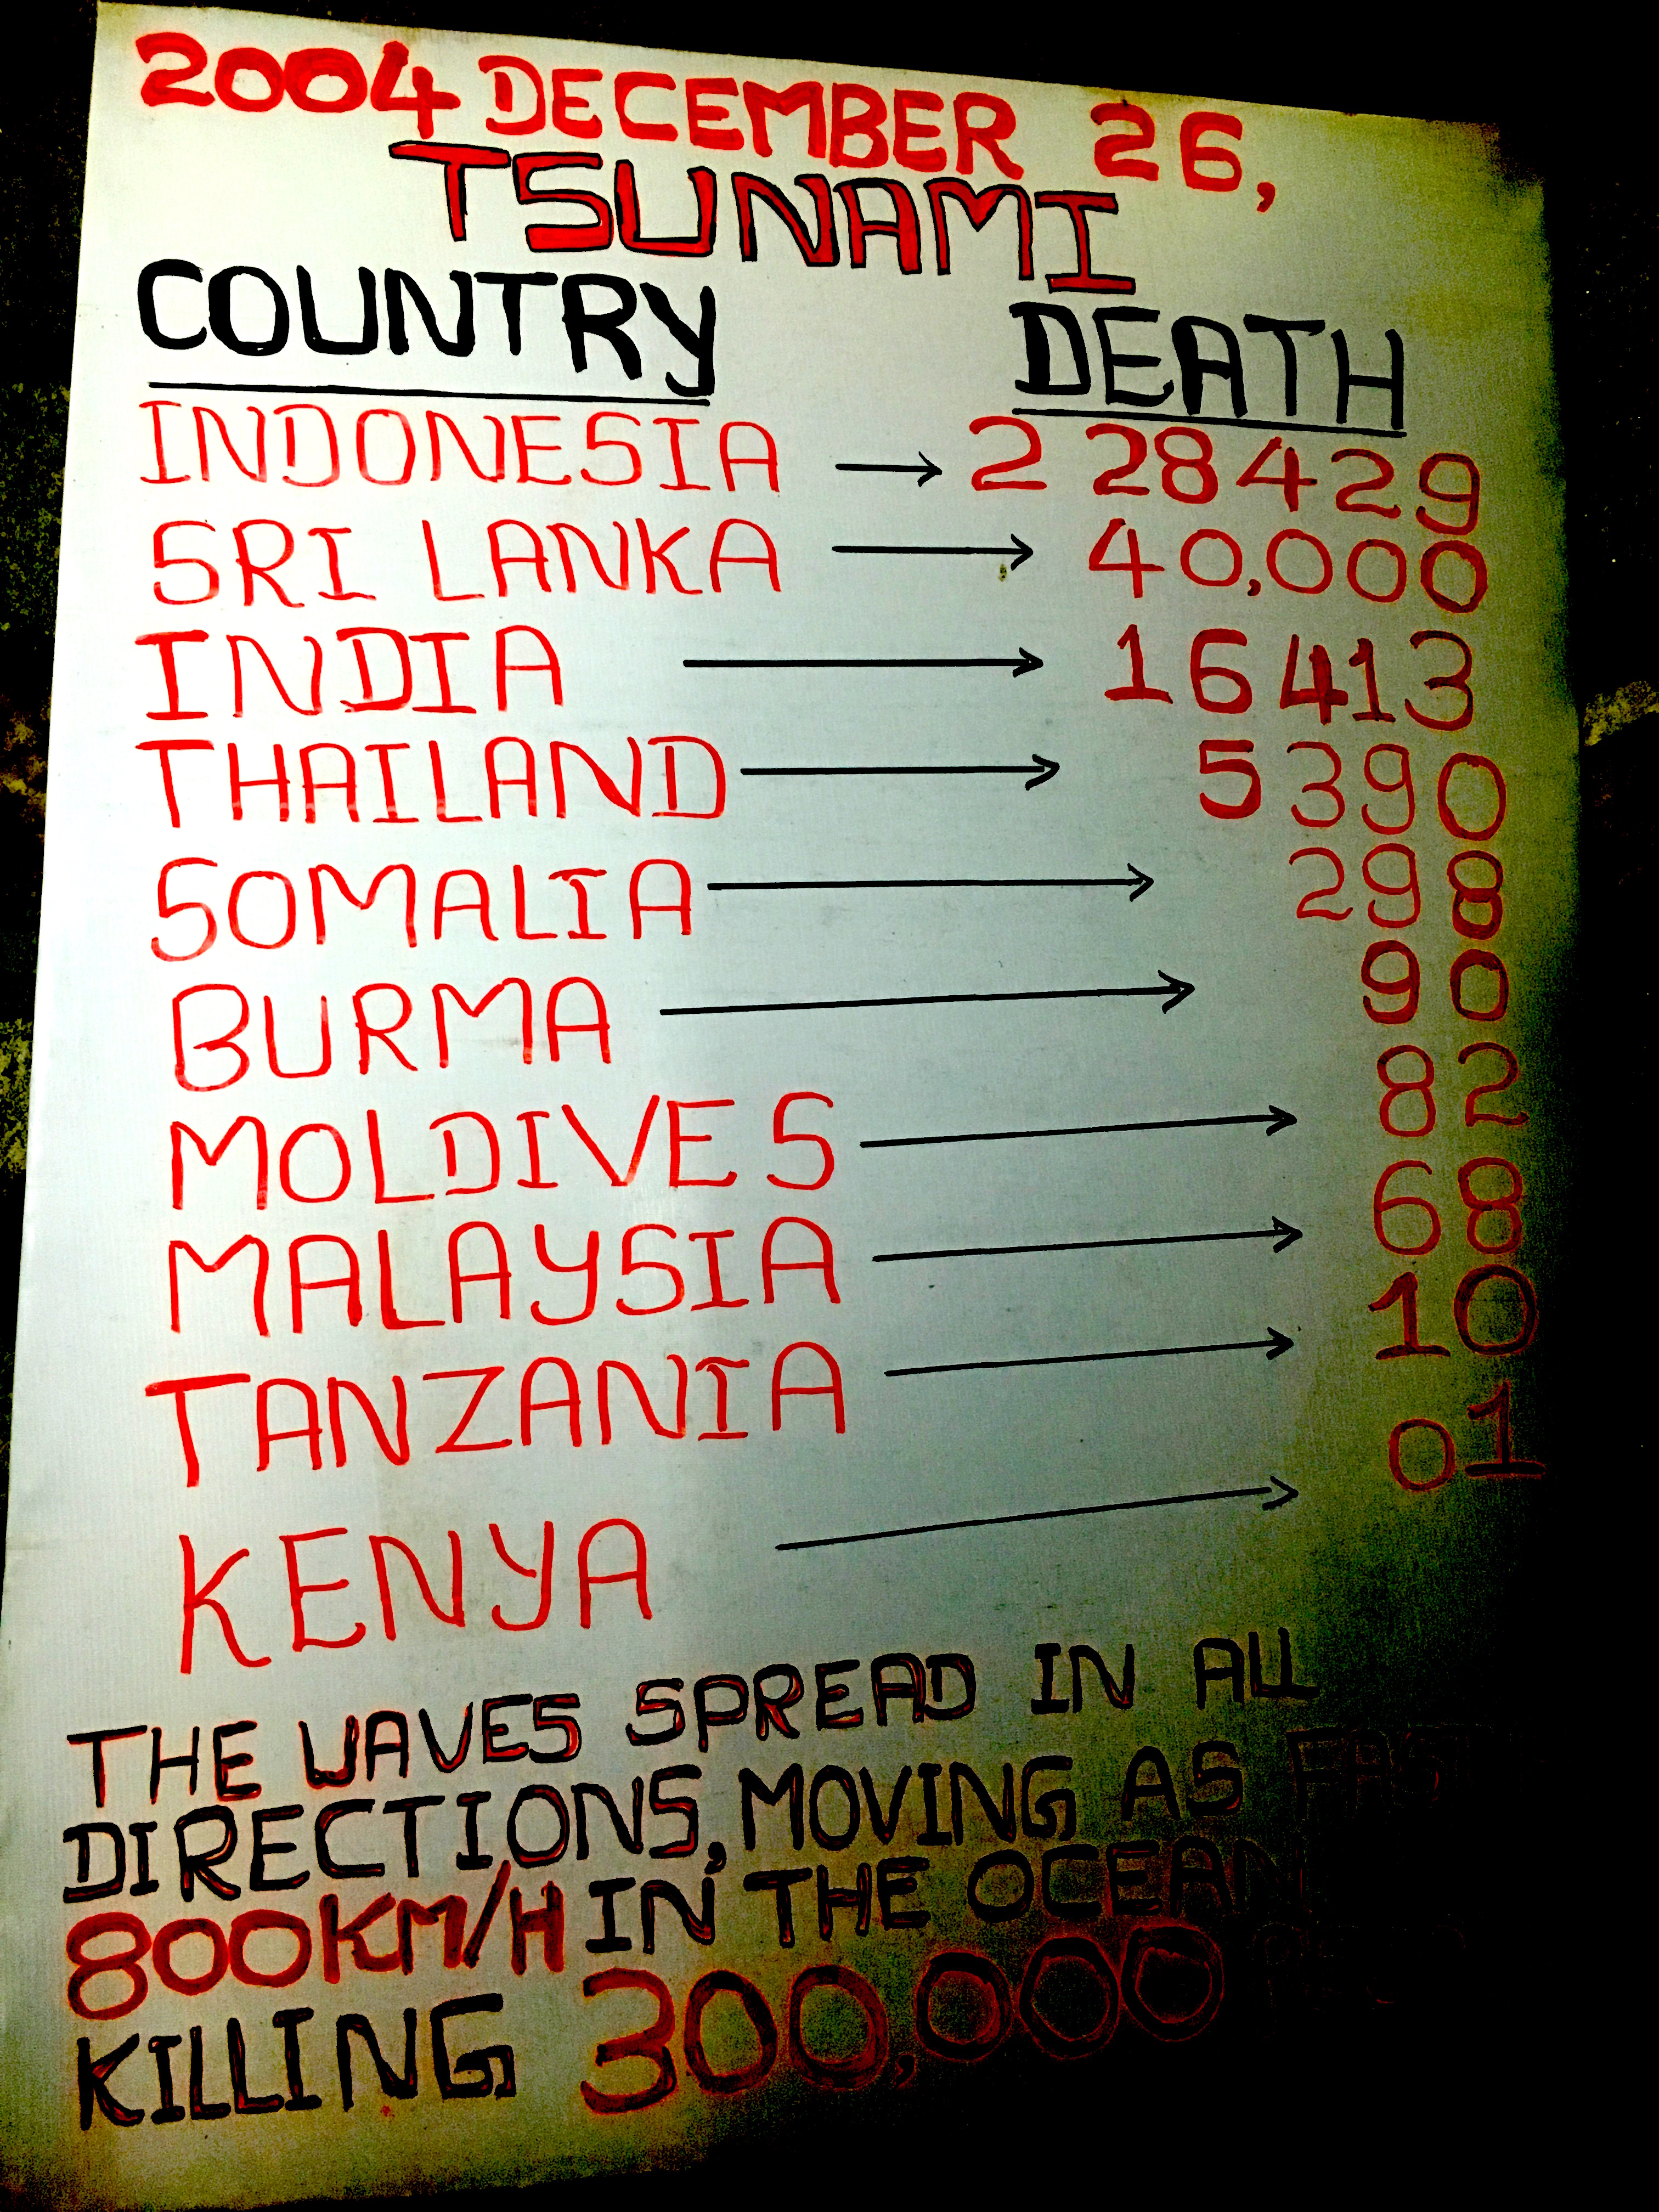 2004 DECEMBER 26,
TSUNAMI
COUNTRY DEATH
INDONESIA → 2 28429
SRI LANKA → 40,000
INDIA → 16413
THAILAND → 5390
SOMALIA → 298
BURMA → 90
MOLDIVES → 82
MALAYSIA → 68
TANZANIA → 10
KENYA → 01
THE WAVES SPREAD IN ALL
DIRECTIONS, MOVING AS FAST
800KM/H IN THE OCEAN
KILLING 300,000